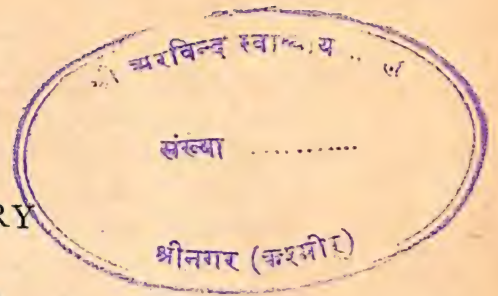 श्री अरविन्द स्वाध्याय
संख्या ...........
RY
श्रीनगर (कश्मीर)